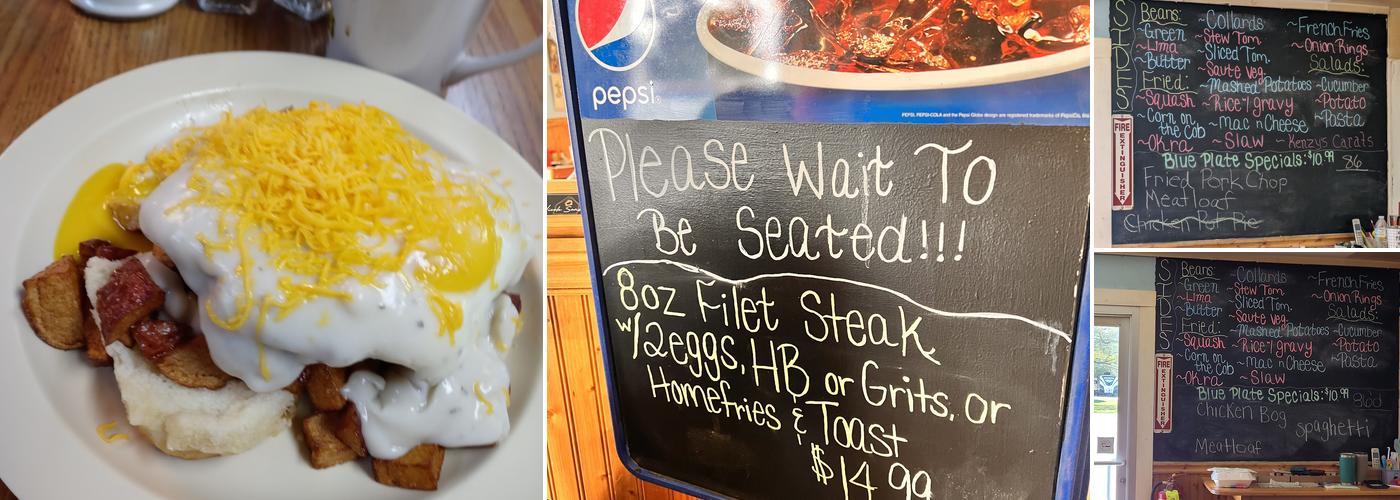 pepsi®
PEPSI, PEPSI-COLA and the Pepsi Globe design are registered trademarks of PepsiCo, Inc
Please Wait To
Be Seated!!!
8oz Filet Steak
w/2eggs, HB or Grits, or
Homefries & Toast
$14.99
SIDES
Beans: ~Collards ~French Fries
~Green ~Stew Tom. ~Onion Rings
~Lima ~Sliced Tom. Salads:
~Butter ~Saute Veg. ~Cucumber
Fried: ~Mashed Potatoes ~Potato
~Squash ~Rice w/ gravy ~Pasta
~Corn on the Cob ~Mac n Cheese
~Okra ~Slaw ~Kenzys Carats
Blue Plate Specials: $10.99 86
Fried Pork Chop
Meatloaf
Chicken Pot Pie
FIRE EXTINGUISHER
SIDES
Beans: ~Collards ~French Fries
~Green ~Stew Tom. ~Onion Rings
~Lima ~Sliced Tom. Salads:
~Butter ~Saute Veg. ~Cucumber
Fried: ~Mashed Potatoes ~Potato
~Squash ~Rice w/ gravy ~Pasta
~Corn on the Cob ~Mac n Cheese
~Okra ~Slaw
Blue Plate Specials: $10.99
Chicken Bog
Spaghetti
Meatloaf
FIRE EXTINGUISHER